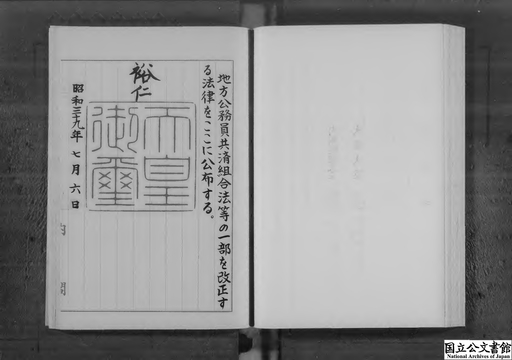 地方公務員共済組合法等の一部を改正す
る法律をここに公布する。
裕仁
天皇
御璽
昭和三十九年七月六日
内閣
国立公文書館
National Archives of Japan